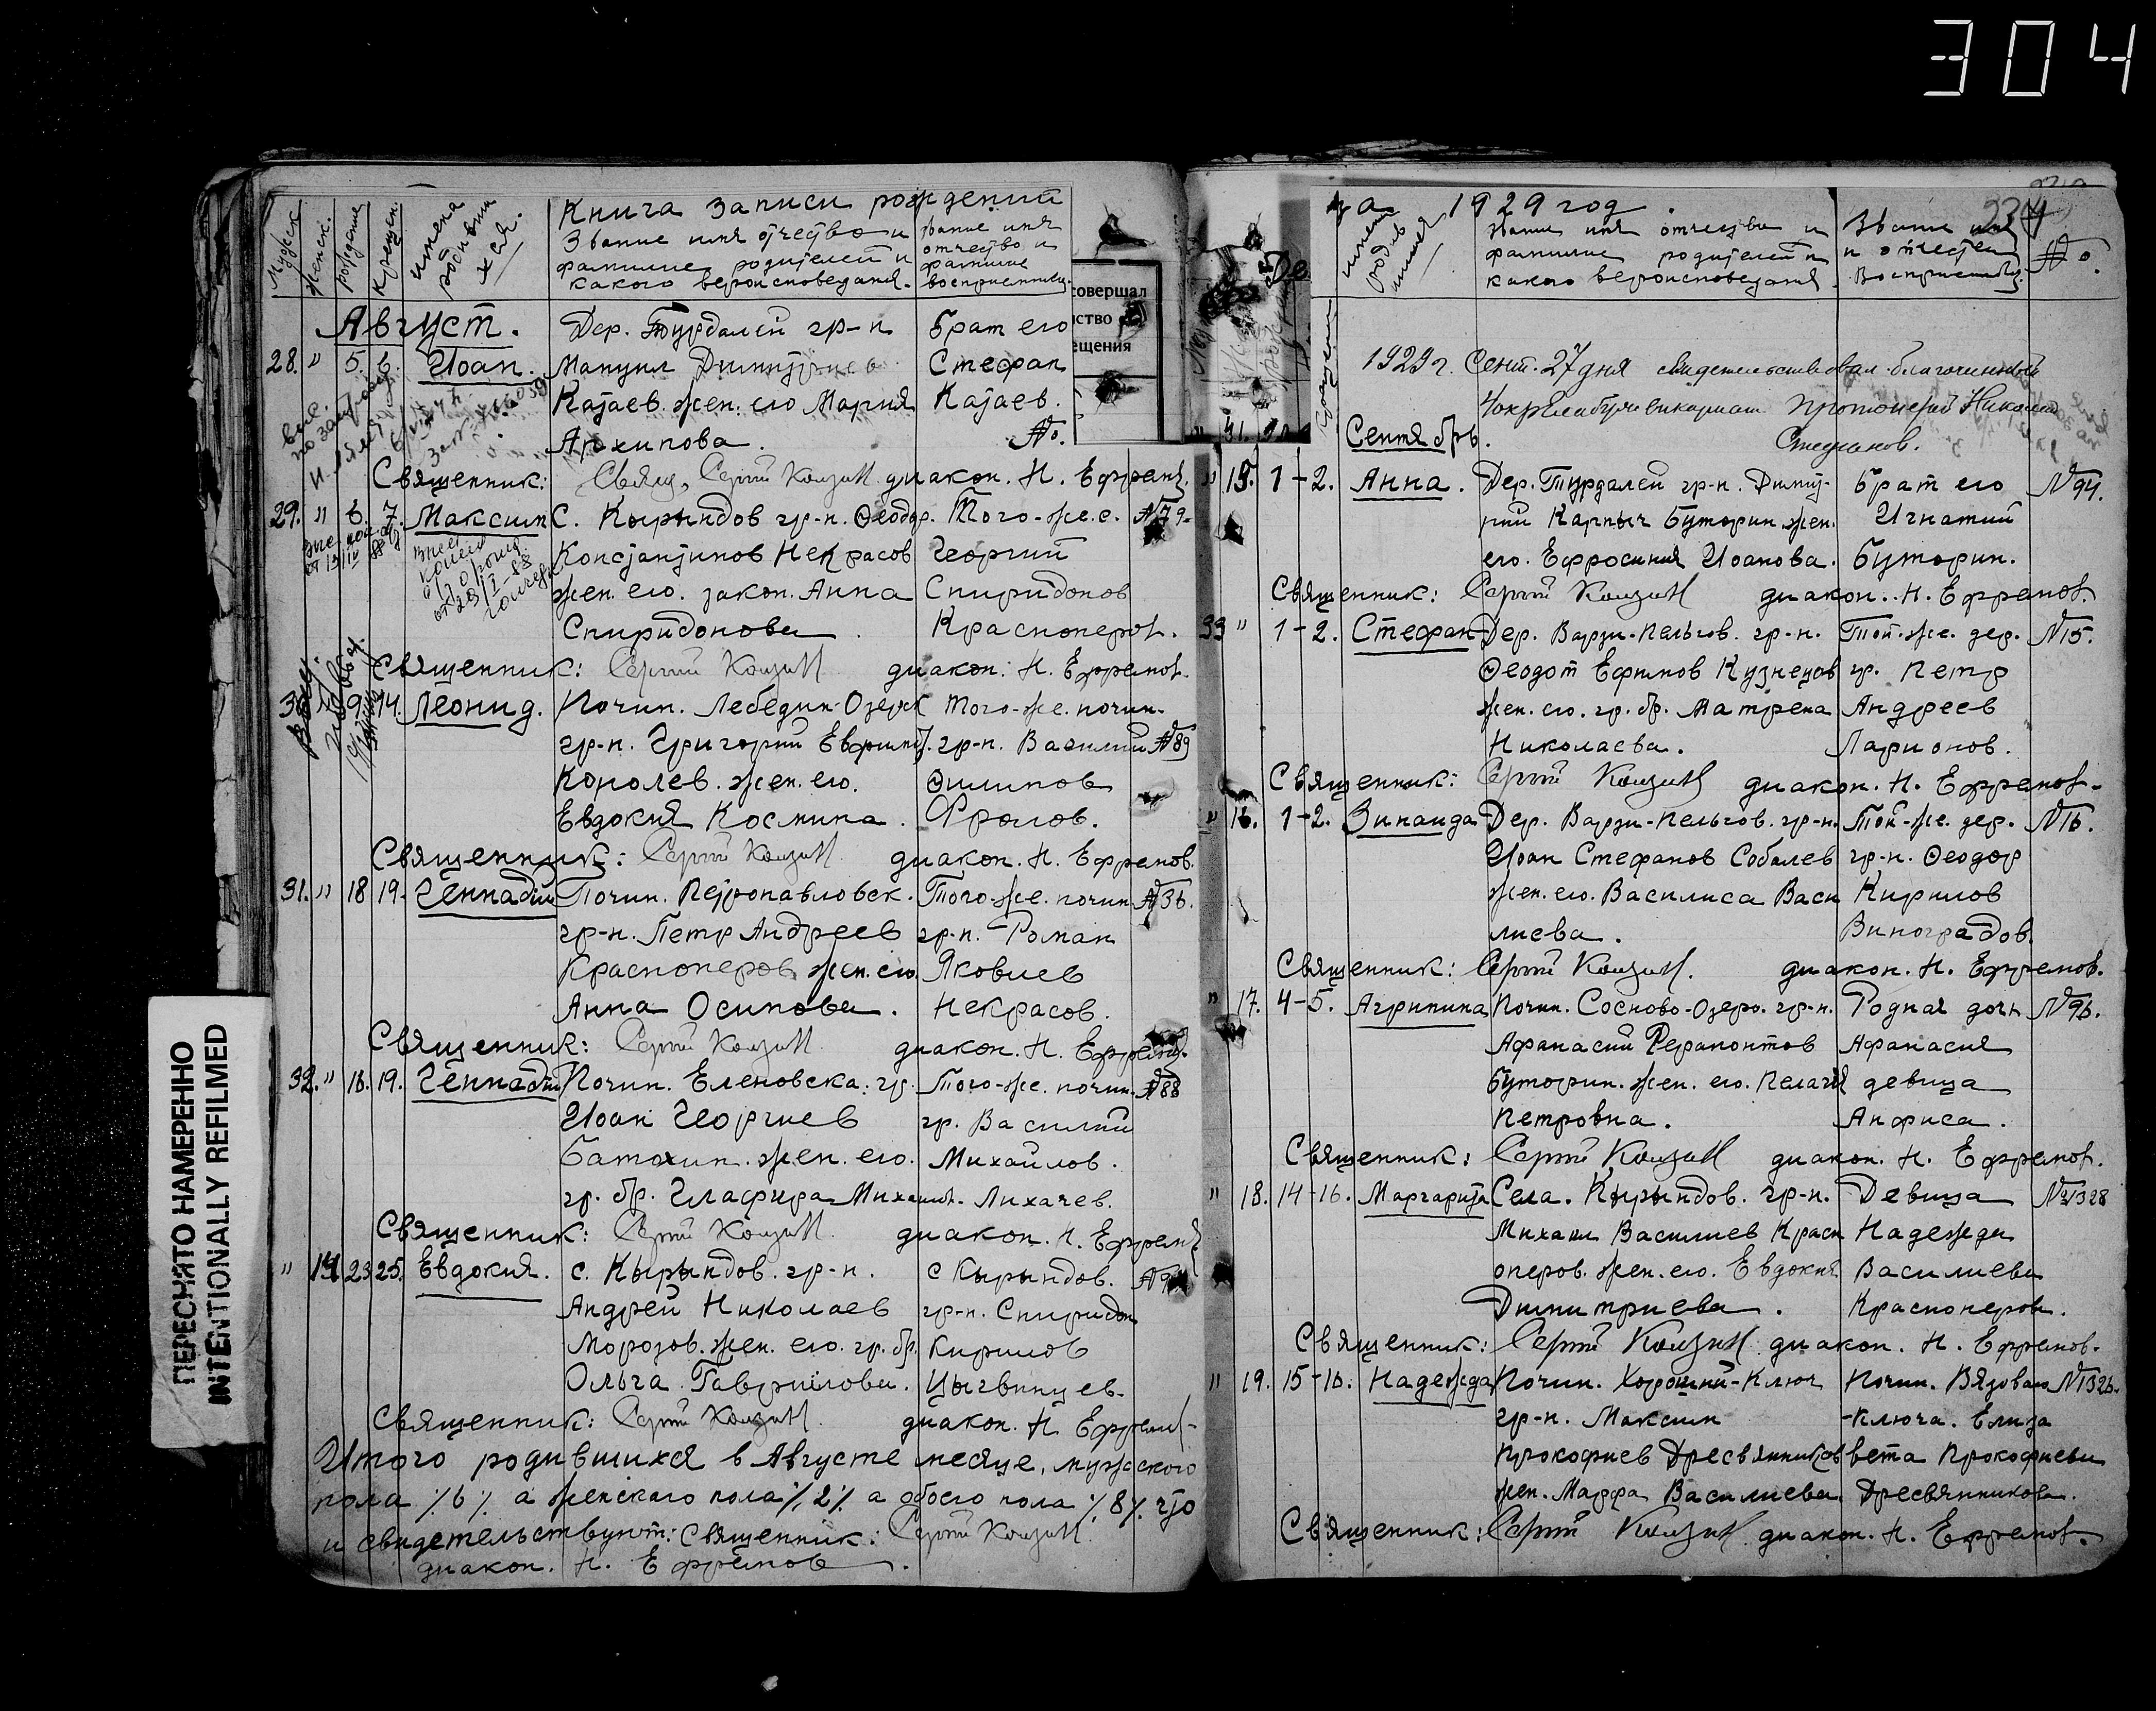 304
ПЕРЕСНЯТО НАМЕРЕННО
INTENTIONALLY REFILMED
Книга записи рождений
Мужск. Женск. рождение крещен. имена родившихся.
Звание имя отчество и фамилие родителей и какого вероисповедания.
Звание имя отчество и фамилие восприемник.
совершал
ство
ещения
Август. Дер. Турдалей гр-н Брат его
28. " 5. 6. Иоан. Мануил Димитриев Стефан
Катаев. жен. его Мария Катаев.
Архипова. №.
Священник: Свящ. Сергий диакон. Н. Ефремов.
29. " 6. 7. Максим С. Кырындов гр-н. Ѳеодор. Того-же. с. №79.
Константинов Некрасов Георгий
жен. его. закон. Анна Спиридонов
Спиридонова. Красноперов.
Священник: Сергий диакон. Н. Ефремов.
30. " 9. 14. Леонид. Почин. Лебедин-Озерск Того-же. почин.
гр-н. Григорий Евфимов. гр-н. Василий №89
Королев. жен. его. Ѳилипов
Евдокия Космина. Фролов.
Священник: Сергий диакон. Н. Ефремов.
31. " 18 19. Геннадий Почин. Петропавловск. Того-же. почин. №36.
гр-н. Петр Андреев гр-н. Роман
Красноперов жен. его. Яковлев
Анна Осипова. Некрасов.
Священник: Сергий диакон. Н. Ефремов.
32. " 18. 19. Геннадий Почин. Еленовска. гр. Того-же. почин. №88
Иоан Георгиев гр. Василий
Батохин. жен. его. Михайлов.
гр. бр. Глафира Михайл. Лихачев.
Священник: Сергий диакон. Н. Ефремов
" 14 23 25. Евдокия. с. Кырындов. гр-н. с Кырындов.
Андрей Николаев гр-н. Спиридон
Морозов. жен. его. гр. бр. Кирилов
Ольга Гаврилова. Цыгвинцев.
Священник: Сергий диакон. Н Ефремов
Итого родившихся в Августе месяце, мужского
пола % 6 % а женскаго пола % 2 % а обоего пола % 8 % что
и свидетельствуют: Священник: Сергий
диакон. Н. Ефремов.
за 1929 год.
Звание имя отчество и фамилие родителей и какого вероисповедания.
Звание имя и отчество Восприемник.
№.
234
1929 г. Сент. 27 дня свидетельствовал благочинный
Протоиерей Николай
Степанов.
Сентябрь.
" 15. 1-2. Анна. Дер. Турдалей гр-н. Димит- Брат его №94.
рий Карпыч Буторин жен. Игнатий
его. Ефросиния Иоанова. Буторин.
Священник: Сергий диакон. Н. Ефремов.
33 " 1-2. Стефан Дер. Варзи-Пельгов. гр-н. Той-же. дер. №15.
Ѳеодот Ефимов Кузнецов гр. Петр
жен. его. гр. бр. Матрена Андреев
Николаева. Ларионов.
Священник: Сергий диакон. Н. Ефремов.
" 16. 1-2. Зинаида Дер. Варзи-Пельгов. гр-н. Той-же. дер. №16.
Иоан Стефанов Соболев гр-н. Ѳеодор
жен. его. Василиса Васи Кирилов
лиева. Виноградов.
Священник: Сергий диакон. Н. Ефремов.
" 17. 4-5. Агрипина Почин. Сосново-Озеро. гр-н. Родная дочь №96.
Афанасий Ферапонтов Афанасия
Буторин. жен. его. Пелагия девица
Петровна. Анфиса.
Священник: Сергий диакон. Н. Ефремов.
" 18. 14-16. Маргарита Села. Кырындов. гр-н. Девица №1328
Михаил Василиев Красн Надежда
оперов. жен. его. Евдокия Василиева
Димитриева. Красноперова.
Священник: Сергий диакон. Н. Ефремов.
" 19. 15-16. Надежда Почин. Хороший-Ключ Почин. Вязоваго №1326.
гр-н. Максим -Ключа. Елиза
Прокофиев Дресвянников вета Прокофиева
жен. Марфа Василиева. Дресвянникова.
Священник: Сергий диакон. Н. Ефремов.